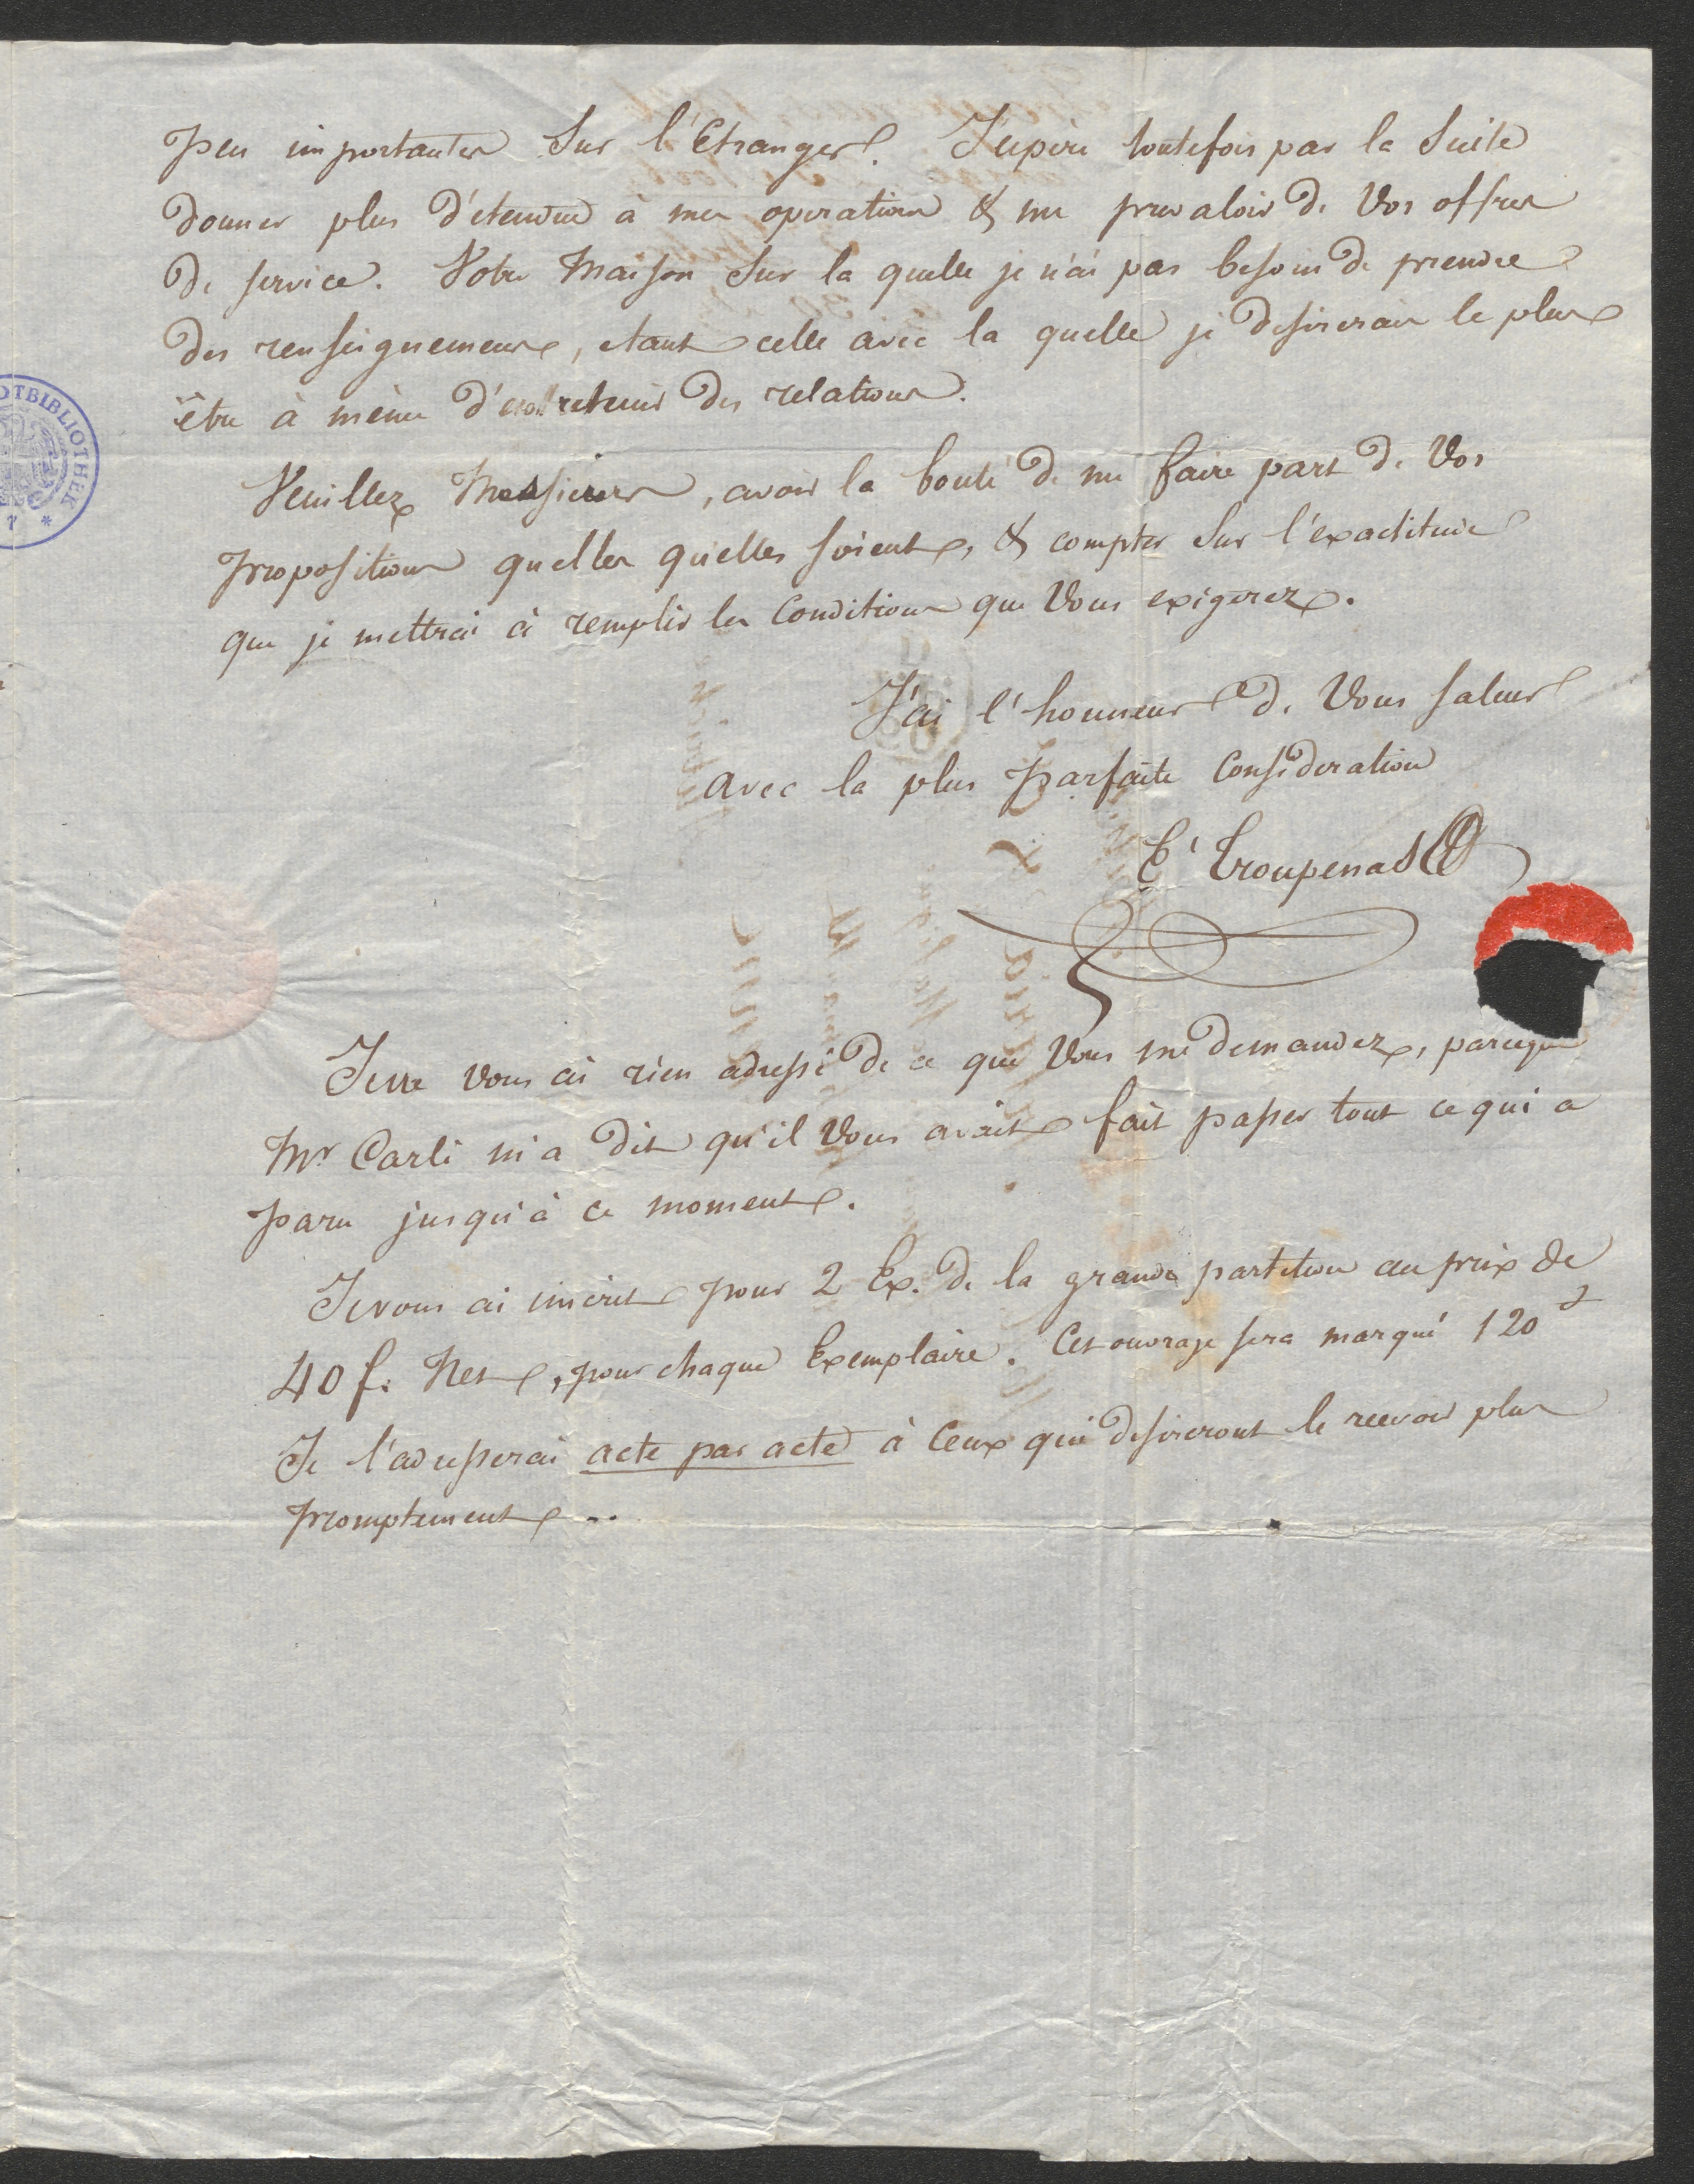 peu importantes sur l'Etranger. J'espere toutefois par la suite
donner plus d'etendue à mes operations & me prevaloir de Vos offres
de service. Votre Maison sur la quelle je n'ai pas besoin de prendre
des renseignemens, etant celle avec la quelle je desirerais le plus
être à même d'entretenir des relations.
Veuillez Messieurs, avoir la bonté de me faire part de Vos
propositions quelles qu'elles soient, & compter sur l'exactitude
que je mettrai à remplir les Conditions que Vous exigerez.
J'ai l'honneur de Vous saluer
avec la plus parfaite Consideration
E' Troupenas
Je ne vous ai rien adressé de ce que Vous me demandez, parceque
Mr Carli m'a dit qu'il Vous avait fait passer tout ce qui a
paru jusqu'à ce moment.
Je vous ai inscrit pour 2 Ex. de la grande partition au prix de
40 f. Net, pour chaque Exemplaire. Cet ouvrage sera marqué 120 f
Je l'adresserai acte par acte à Ceux qui desireront le recevoir plus
promptement ..
OTBIBLIOTHEK